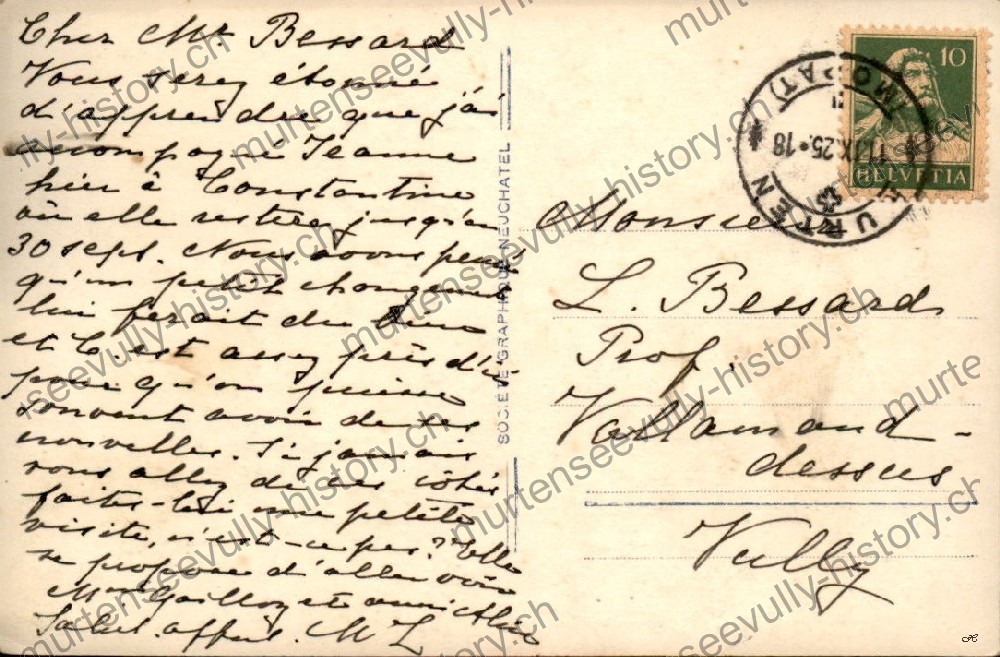 Cher Mr. Bessard
Vous serez étonné
d'apprendre que j'ai
accompagné Jeanne
hier à Constantine
où elle restera jusqu'au
30 sept. Nous avons pensé
qu'un petit changement
lui ferait du bien
et C. est assez près d'ici
pour qu'on puisse
souvent avoir de ses
nouvelles. Si jamais
vous allez de ces côtés
faites-lui une petite
visite, n'est-ce pas? Elle
se propose d'aller voir
Mme et aussi
Salut. affect. M L
SOCIÉTÉ GRAPHIQUE NEUCHATEL
10
HELVETIA
MURTEN
(MORAT)
IX.25.-18
Monsieur
L. Bessard
Prof.
Vallamand-
dessus
Vully
murtenseevully-history.ch